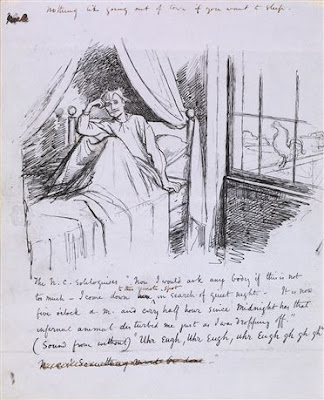 Nothing like going out of town if you want to sleep.
The N.C. Soliloquises "Now I would ask any body if this is not
to this quiet spot
to much - I come down here in search of quiet night. - It is now
five o'clock a.m. and every half hour since Midnight has that
infernal animal disturbed me just as I was dropping off."
(Sound from without) Uhr Eugh, Uhr Eugh, uhr Eugh gh gh gh"